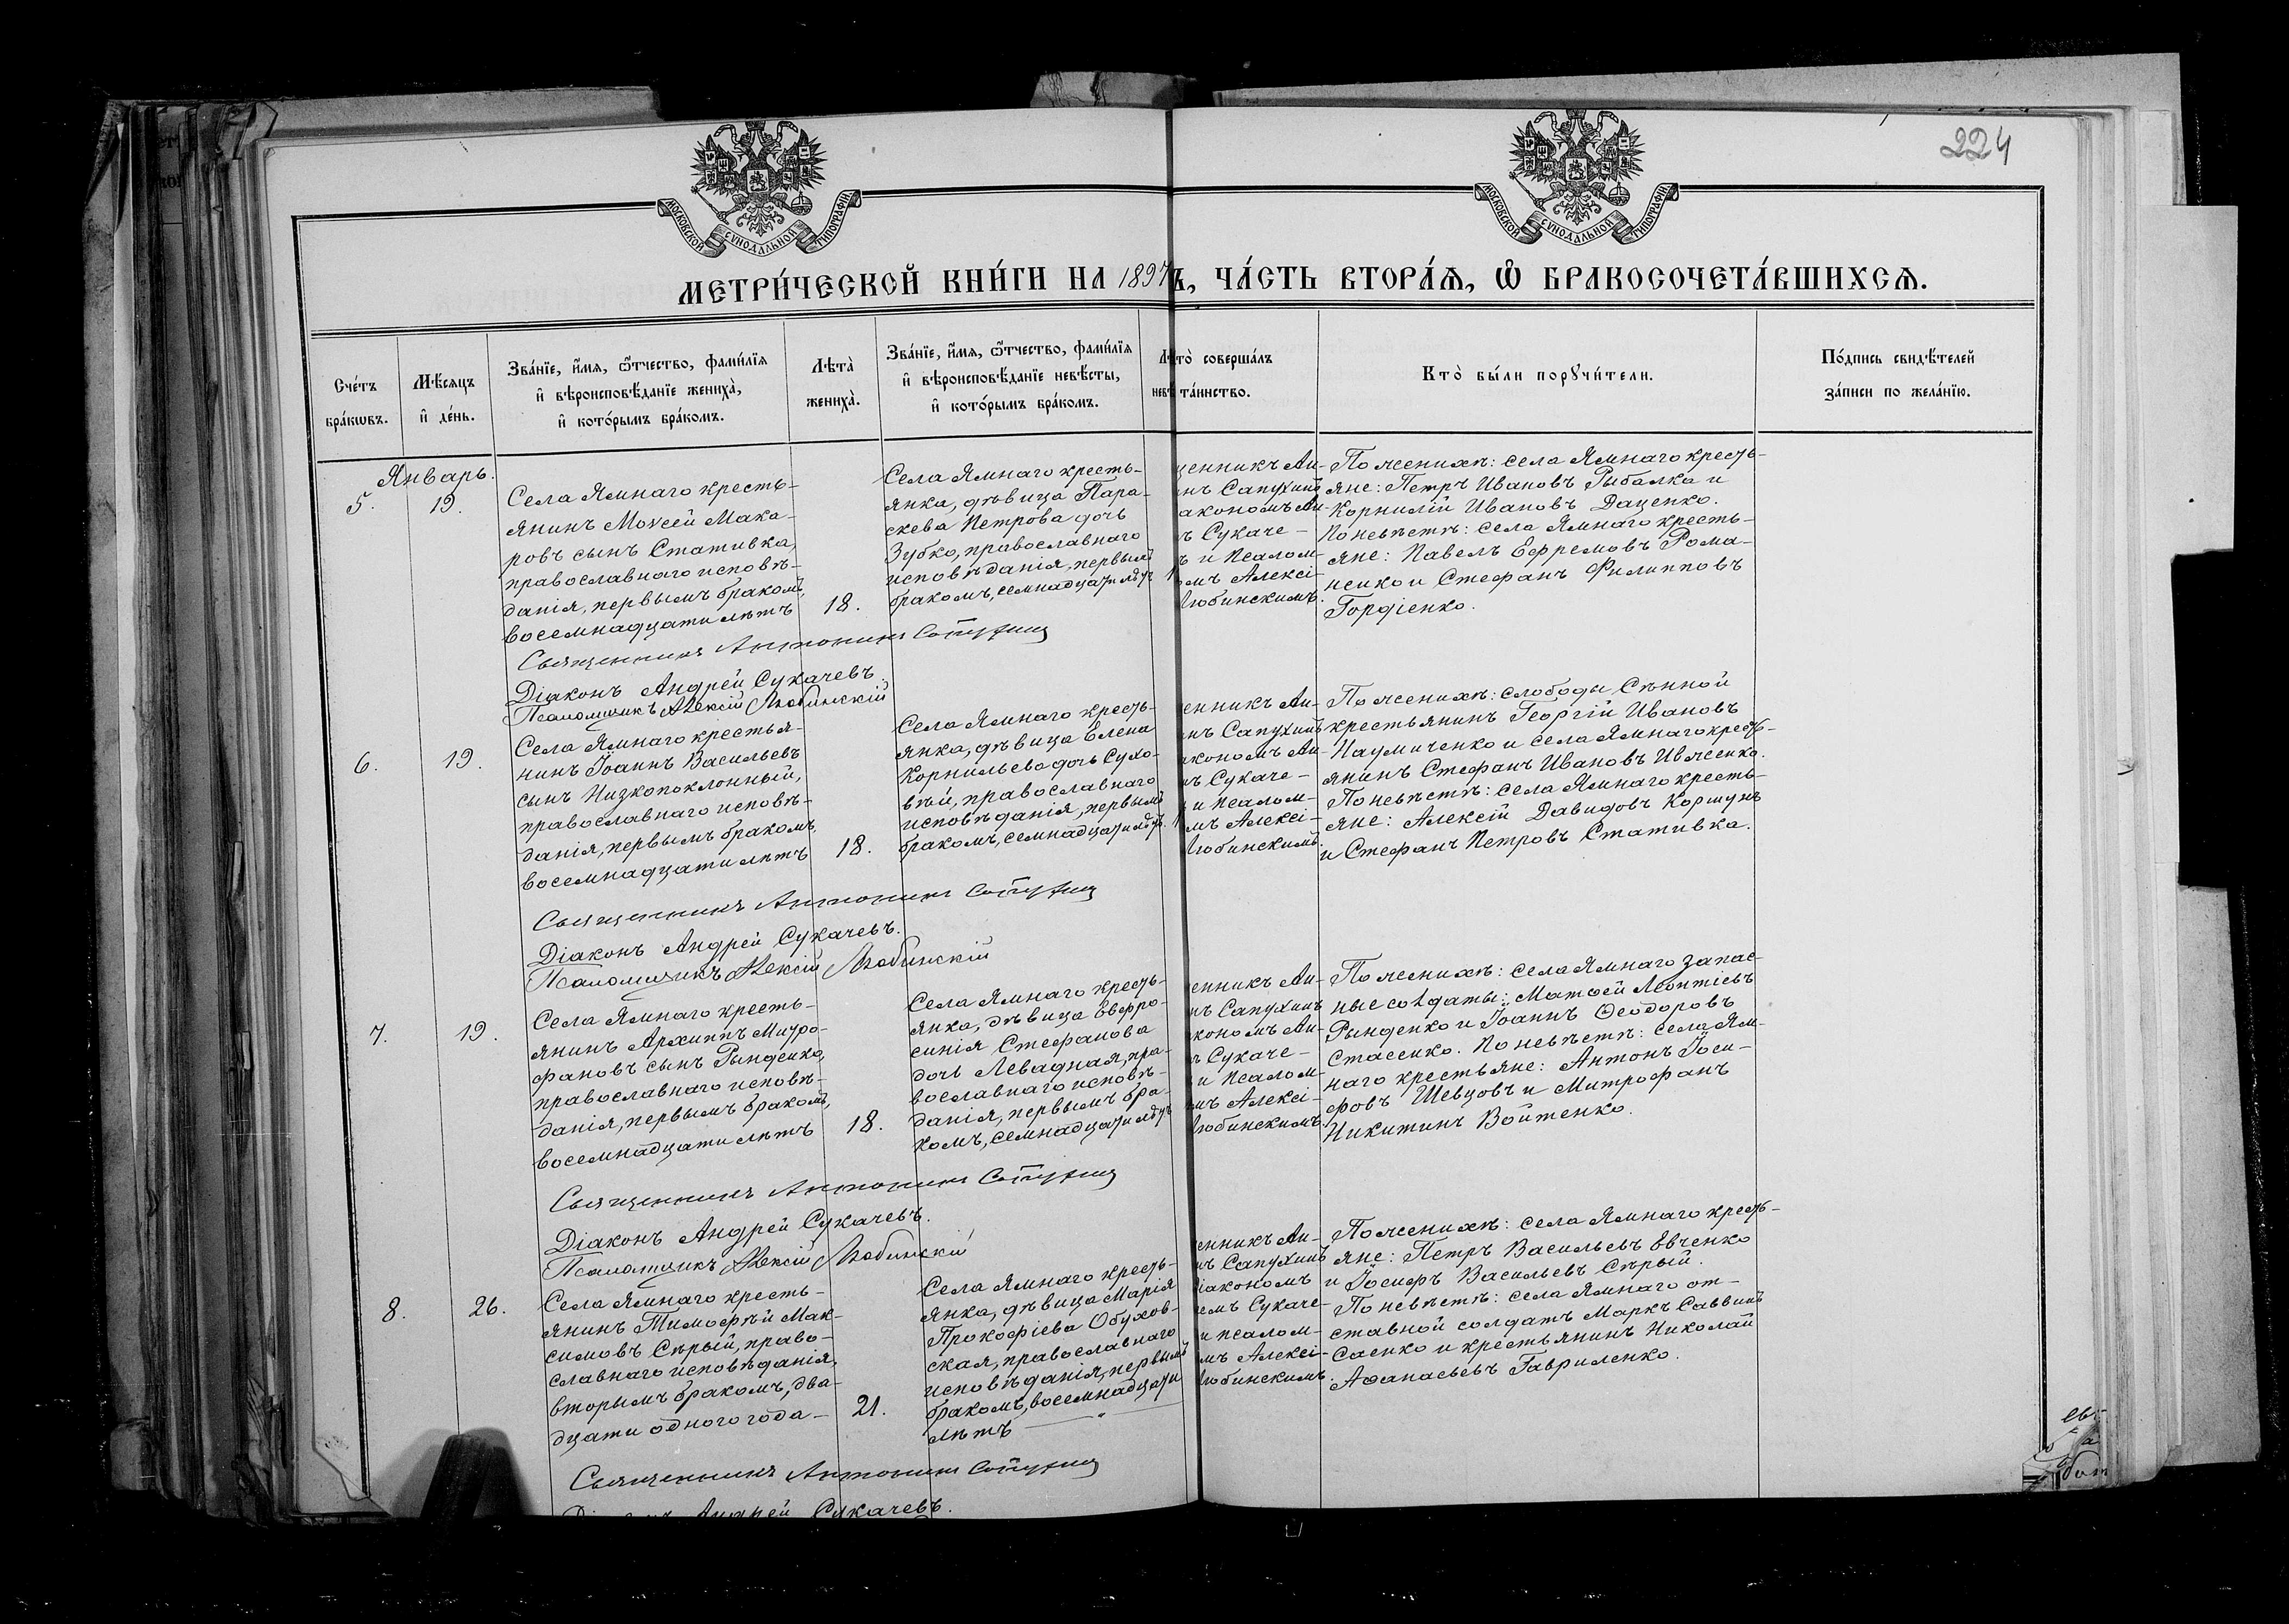 224
МОСКОВСКОЙ СУНОДАЛЬНОЙ ТИПОГРАФІИ
МОСКОВСКОЙ СУНОДАЛЬНОЙ ТИПОГРАФІИ
МЕТРИ́ЧЕСКОЙ КНИ́ГИ НА 1897 Ъ, ЧА́СТЬ ВТОРА́Я, Ѽ БРАКОСОЧЕТА́ВШИХСЯ.
Сче́тъ
бра́кѡвъ.
Мѣ́сяцъ
и҆ де́нь.
Зва́нїе, и҆́мя, ѻ҆́тчество, фами́лїя
и҆ вѣроисповѣ́данїе жениха̀,
и҆ кото́рымъ бра́комъ.
Лѣта̀
жениха̀.
Зва́нїе, и҆́мя, ѻ҆́тчество, фами́лїя
и҆ вѣроисповѣ́данїе невѣ́сты,
и҆ кото́рымъ бра́комъ.
Лѣ
невѣ
то̀ соверша́лъ
та́инство.
Кто̀ бы́ли порꙋчи́тели.
По́дпись свидѣ́телей
за́писи по жела́нїю.
Январь.
5. 19.
Села Ямнаго кресть-
янинъ Моѵсей Мака-
ровъ сынъ Стативка,
православнаго исповѣ-
данія, первымъ бракомъ,
восемнадцати лѣтъ
18.
Села Ямнаго кресть-
янка, дѣвица Пара-
скева Петрова дочь
Зубко, православнаго
исповѣданія, первымъ
бракомъ, семнадцати лѣтъ
щенникъ Ан-
нъ Сапухинъ
акономъ Ан-
ъ Сукаче-
ъ и Псалом-
омъ Алексі-
Любинскимъ.
По женихѣ: села Ямнаго кресть-
яне: Петръ Ивановъ Рыбалка и
Корнилій Ивановъ Даценко.
По невѣстѣ: села Ямнаго кресть-
яне: Павелъ Ефремовъ Рома-
ненко и Стефанъ Филипповъ
Гордіенко.
Священникъ Антонинъ Сапухинъ
Діаконъ Андрей Сукачевъ.
Псаломщикъ Алексій Любинскій
6. 19.
Села Ямнаго крестья-
нинъ Іоаннъ Васильевъ
сынъ Низкопоклонный,
православнаго исповѣ-
данія, первымъ бракомъ,
восемнадцати лѣтъ
18.
Села Ямнаго кресть-
янка, дѣвица Елена
Корнильева дочь Сухо-
вѣй, православнаго
исповѣданія, первымъ
бракомъ, семнадцати лѣтъ.
енникъ Ан-
нъ Сапухинъ
акономъ Ан-
ъ Сукаче-
и псалом-
мъ Алексі-
Любинскимъ.
По женихѣ: слободы Сѣнной
крестьянинъ Георгій Ивановъ
Наумиченко и села Ямнаго кресть-
янинъ Стефанъ Ивановъ Ивженко.
По невѣстѣ: села Ямнаго кресть-
яне: Алексій Давидовъ Коршунъ
и Стефанъ Петровъ Стативка.
Священникъ Антонинъ Сапухинъ
Діаконъ Андрей Сукачевъ.
Псаломщикъ Алексій Любинскій
7. 19.
Села Ямнаго кресть-
янинъ Архиппъ Митро-
фановъ сынъ Рынденко,
православнаго исповѣ-
данія, первымъ бракомъ,
восемнадцати лѣтъ
18.
Села Ямнаго кресть-
янка, дѣвица Евфро-
синія Стефанова
дочь Левадная, пра-
вославнаго исповѣ-
данія, первымъ бра-
комъ, семнадцати лѣтъ
енникъ Ан-
нъ Сапухинъ
акономъ Ан-
ъ Сукаче-
и Псалом-
мъ Алексі-
Любинскимъ.
По женихѣ: села Ямнаго запас-
ные солдаты: Матѳей Леонтіевъ
Рынденко и Іоаннъ Ѳеодоровъ
Стасенко. По невѣстѣ: села Ям-
наго крестьяне: Антонъ Іоси-
фовъ Шевцовъ и Митрофанъ
Никитинъ Войтенко.
Священникъ Антонинъ Сапухинъ
Діаконъ Андрей Сукачевъ.
Псаломщикъ Алексій Любинскій
8. 26.
Села Ямнаго кресть-
янинъ Тимофѣй Мак-
симовъ Сѣрый, право-
славнаго исповѣданія,
вторымъ бракомъ, два-
дцати одного года-
21.
Села Ямнаго кресть-
янка, дѣвица Марія
Прокофіева Обухов-
ская, православнаго
исповѣданія, первымъ
бракомъ, восемнадцати
лѣтъ
енникъ Ан-
нъ Сапухинъ
іакономъ
емъ Сукаче-
и псалом-
мъ Алексі-
Любинскимъ.
По женихѣ: села Ямнаго кресть-
яне: Петръ Васильевъ Евченко
и Іосифъ Васильевъ Сѣрый.
По невѣстѣ: села Ямнаго от-
ставной солдатъ Маркъ Саввинъ
Саенко и крестьянинъ Николай
Аѳанасьевъ Гавриленко.
Священникъ Антонинъ Сапухинъ
Діаконъ Андрей Сукачевъ.